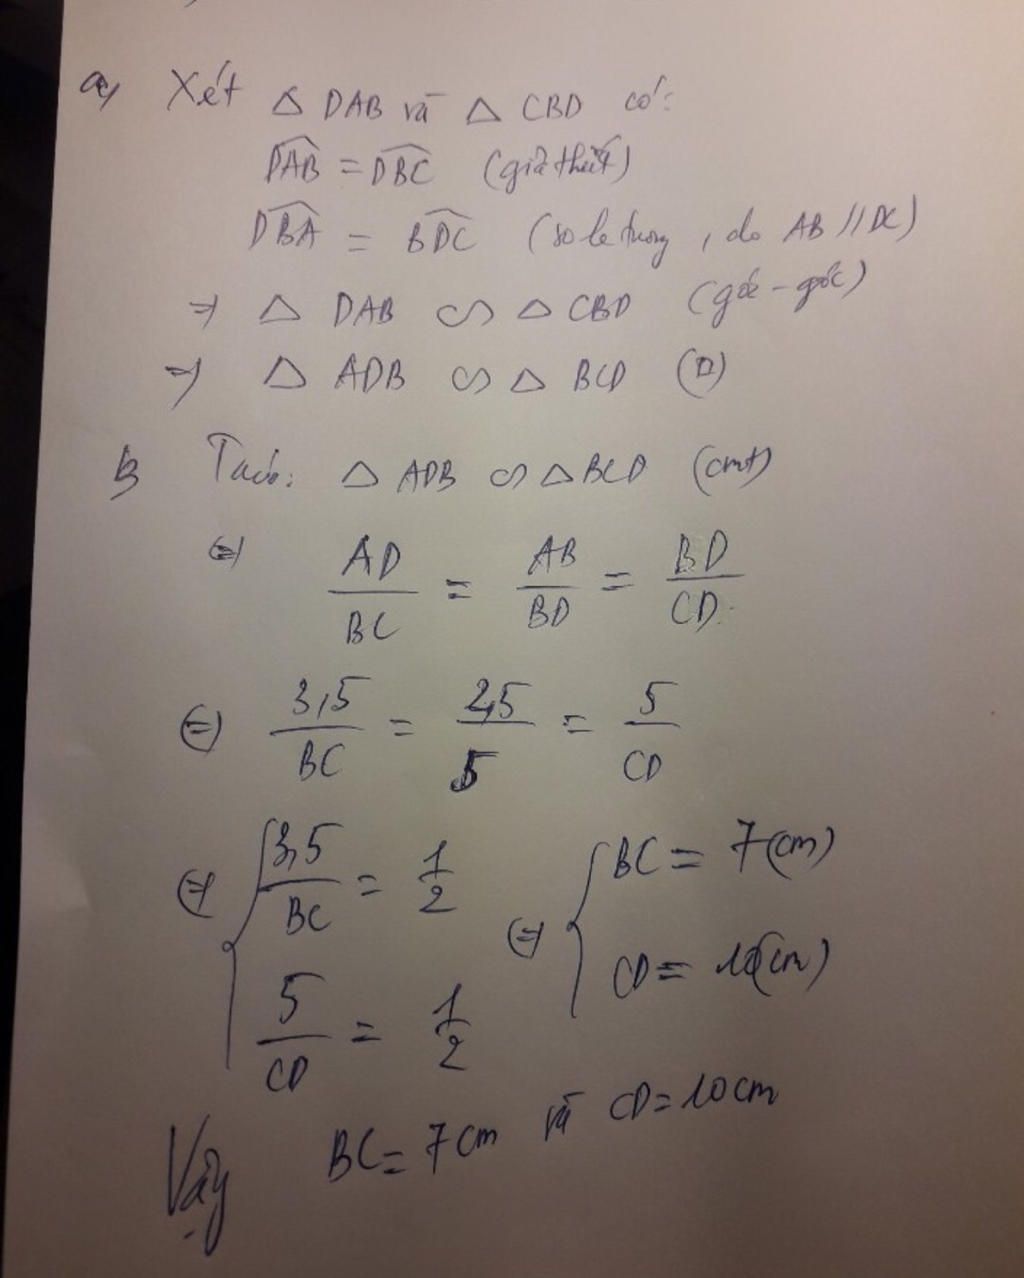 a, Xét △ DAB và △ CBD có:
DAB = DBC (giả thiết)
DBA = BDC (so le trong, do AB // DC)
=> △ DAB ∽ △ CBD (góc - góc)
=> △ ADB ∽ △ BCD
b, Ta có: △ ADB ∽ △ BCD (cmt)
(=) AD/BC = AB/BD = BD/CD.
(=) 3,5/BC = 2,5/5 = 5/CD
(=) { 3,5/BC = 1/2 (=) { BC = 7(cm)
5/CD = 1/2 CD = 10(cm)
Vậy BC = 7cm và CD = 10cm